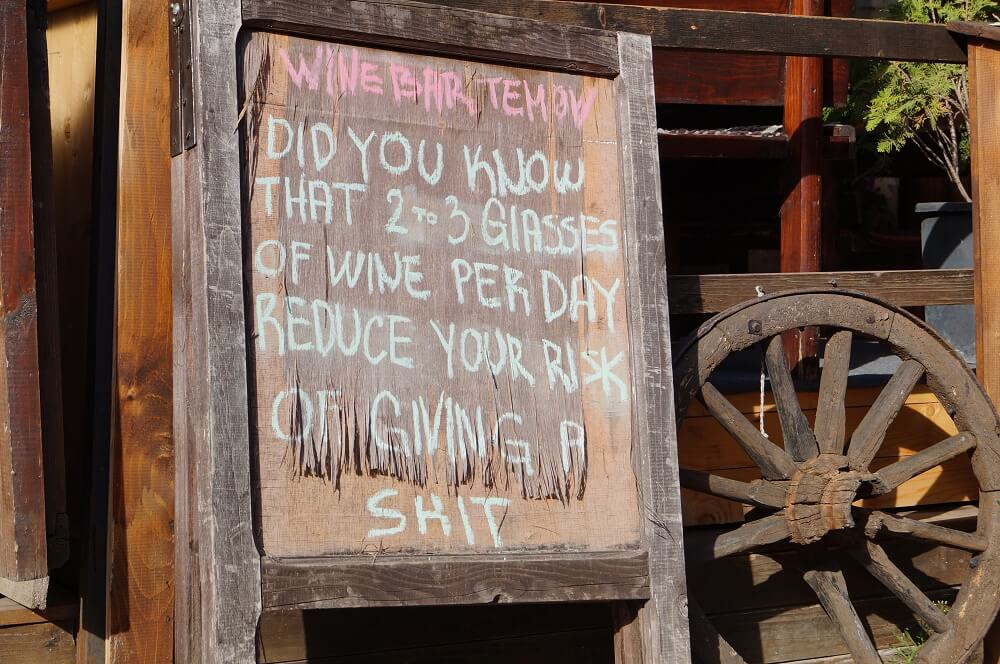 WINE BAR TEMOV
DID YOU KNOW
THAT 2 TO 3 GLASSES
OF WINE PER DAY
REDUCE YOUR RISK
OF GIVING A
SHIT